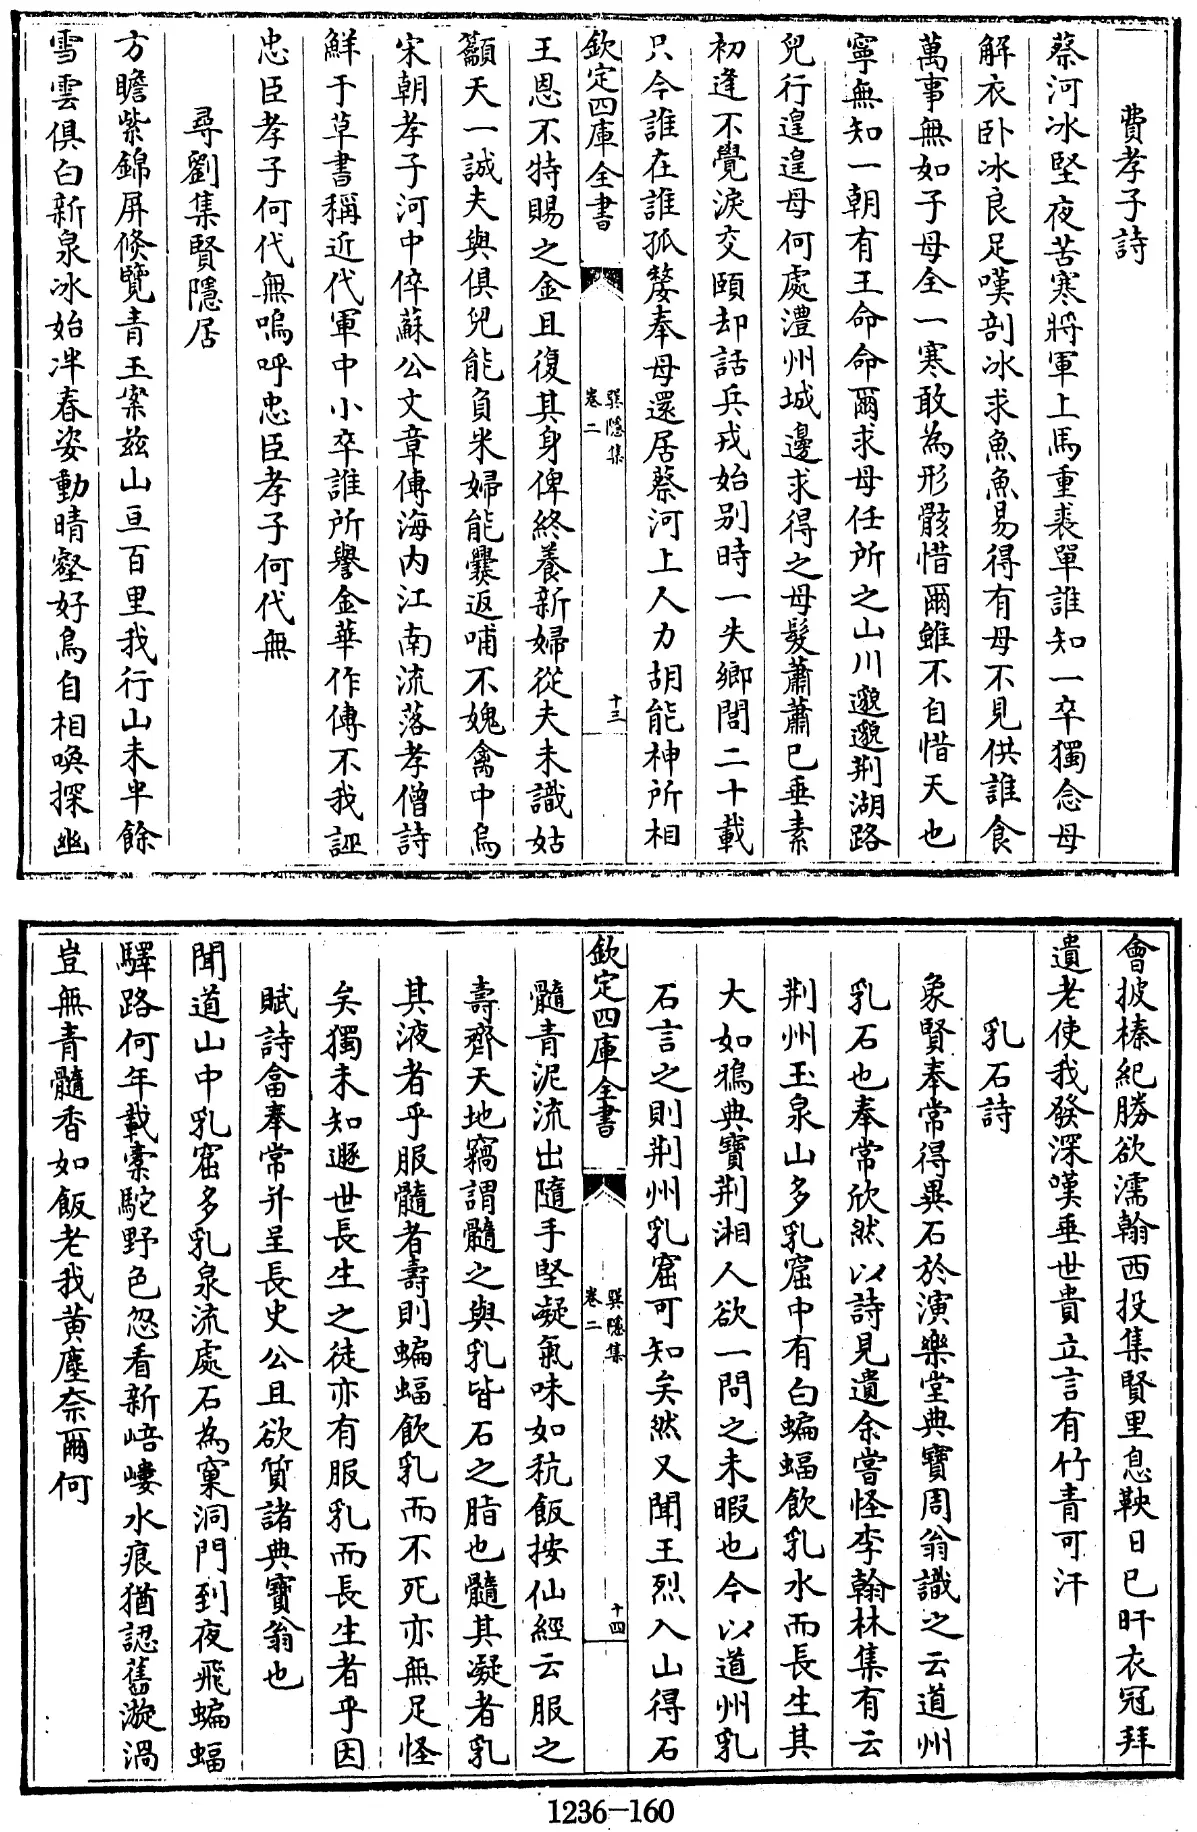 費孝子詩
蔡河冰堅夜苦寒將軍上馬重裘單誰知一卒獨念母
解衣卧冰良足嘆剖冰求魚魚易得有母不見供誰食
萬事無如子母全一寒敢為形骸惜爾雖不自惜天也
寧無知一朝有王命命爾求母任所之山川邈邈荆湖路
兒行遑遑母何處澧州城邊求得之母髮蕭蕭已垂素
初逢不覺淚交頤却話兵戎始别時一失鄉閭二十載
只今誰在誰孤嫠奉母還居蔡河上人力胡能神所相
欽定四庫全書
巽隱集
卷二
十三
王恩不特賜之金且復其身俾終養新婦從夫未識姑
籲天一誠夫與俱兒能負米婦能爨返哺不媿禽中烏
宋朝孝子河中倅蘇公文章傳海内江南流落孝僧詩
鮮于草書稱近代軍中小卒誰所譽金華作傳不我誣
忠臣孝子何代無嗚呼忠臣孝子何代無
尋劉集賢隱居
方瞻紫錦屏倐覽青玉案兹山亘百里我行山未半餘
雪雲俱白新泉冰始泮春姿動晴壑好鳥自相喚探幽
會披榛紀勝欲濡翰西投集賢里息鞅日已旰衣冠拜
遺老使我發深嘆垂世貴立言有竹青可汗
乳石詩
象賢奉常得異石於演樂堂典寶周翁識之云道州
乳石也奉常欣然以詩見遺余嘗怪李翰林集有云
荆州玉泉山多乳窟中有白蝙蝠飲乳水而長生其
大如鴉典寶荆湘人欲一問之未暇也今以道州乳
石言之則荆州乳窟可知矣然又聞王烈入山得石
欽定四庫全書
巽隱集
卷二
十四
髓青泥流出隨手堅凝氣味如秔飯按仙經云服之
壽齊天地竊謂髓之與乳皆石之脂也髓其凝者乳
其液者乎服髓者壽則蝙蝠飲乳而不死亦無足怪
矣獨未知遯世長生之徒亦有服乳而長生者乎因
賦詩畣奉常并呈長史公且欲質諸典寶翁也
聞道山中乳窟多乳泉流處石為窠洞門到夜飛蝙蝠
驛路何年載橐駝野色忽看新㟝嶁水痕猶認舊漩渦
豈無青髓香如飯老我黄塵奈爾何
1236-160